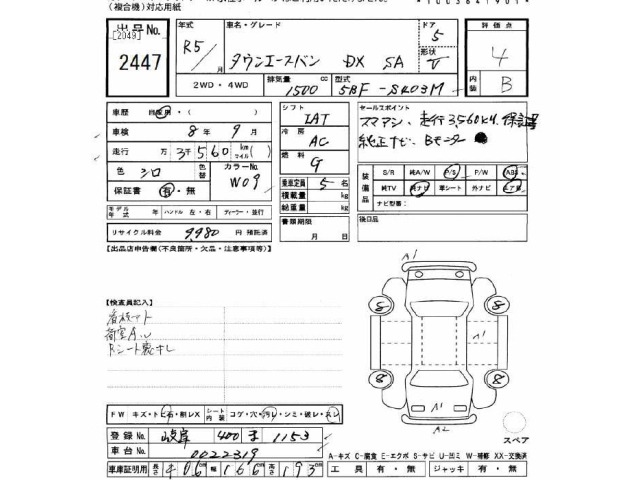 (複合機)対応用紙
出品No.
[2049]
2447
年式
R5/
車名・グレード
タウンエースバン DX SA
ドア
5
形状
V
評価点
4
内装
B
2WD・4WD
排気量
1500 cc
型式
5BF-S403M
車歴 自家用・( )
車検 8年 9月
走行 3万 3千 560 km マイル ( )
色 シロ
色替
カラーNo.
W09
保証書 有・無
モデル年式 年 ハンドル 左・右 ディーラー・並行
リサイクル料金 9,980 円 預託済
シフト
IAT
冷房
AC
燃料
G
乗車定員 5 名
積載量 kg
総重量 kg
書類期限
月 日
セールスポイント
純正ナビ. Bモニター
装備品
S/R 純A/W P/S P/W ABS
純TV 純ナビ 革シート 外ナビ エアB
ナビ型番:
後日品
【出品店申告欄(不良箇所・欠品・注意事項等)】
【検査員記入】
荷室A.U
A1
8 8
A1
8 8
A1
A2
スペア
FW キズ・トビ石・割レX シート内装 コゲ・穴・汚レ・シミ・破レ・スレ
登録No. 岐阜 400 す 1153
車台No. 0022319
車庫証明用 長さ 406 cm 幅 166 cm 高さ 193 cm
A-キズ C-腐食 E-エクボ S-サビ U-凹ミ W-補修 XX-交換済
工具 有・無 ジャッキ 有・無